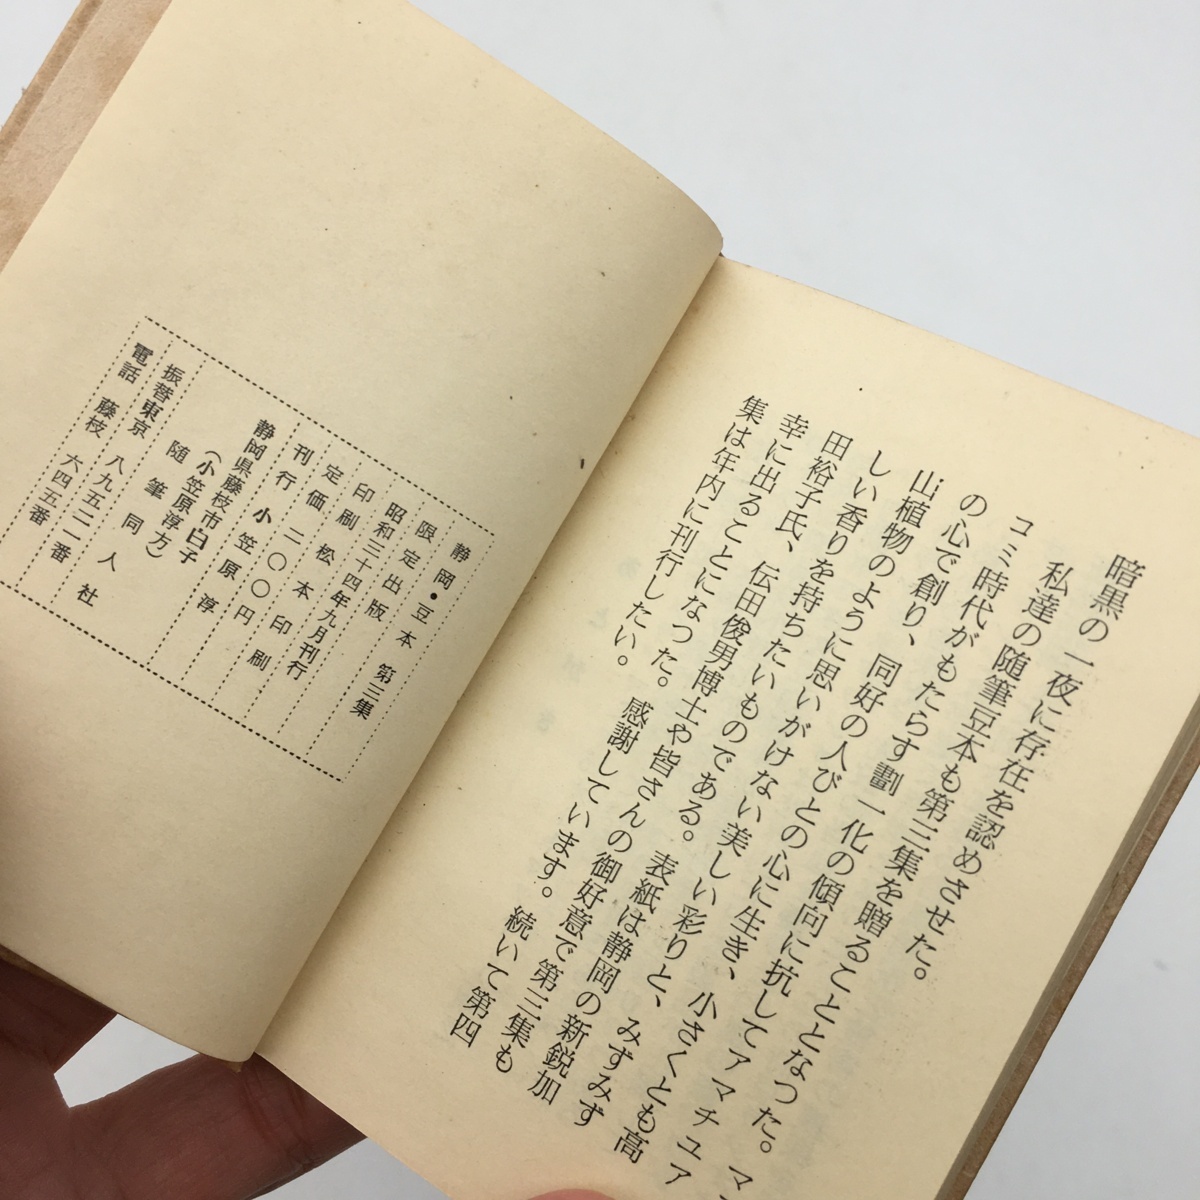 暗黒の一夜に存在を認めさせた。
私達の随筆豆本も第三集を贈ることとなつた。マ
コミ時代がもたらす劃一化の傾向に抗してアマチュア
の心で創り、同好の人びとの心に生き、小さくとも高
山植物のように思いがけない美しい彩りと、みずみず
しい香りを持ちたいものである。表紙は静岡の新鋭加
田裕子氏、伝田俊男博士や皆さんの御好意で第三集も
幸に出ることになつた。感謝しています。続いて第四
集は年内に刊行したい。
静岡・豆本 第三集
限定出版
昭和三十四年九月刊行
印刷 松本印刷
定価 二〇〇円
刊行 小笠原淳
静岡県藤枝市白子
(小笠原淳方)
随筆同人社
振替東京 八九五二一番
電話 藤枝 六四五番